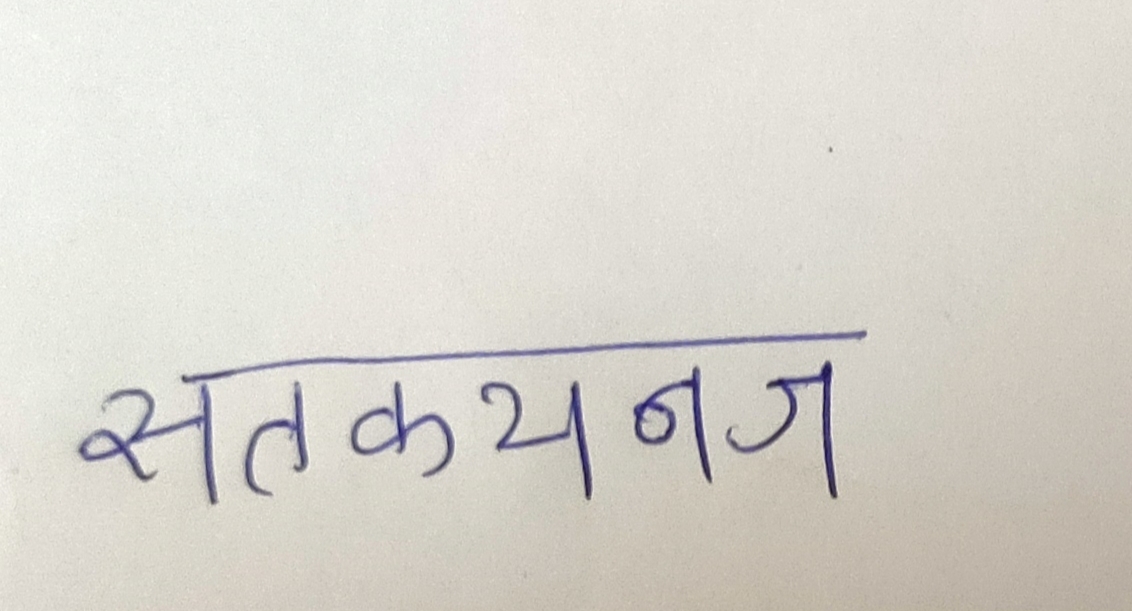 सतकयनज